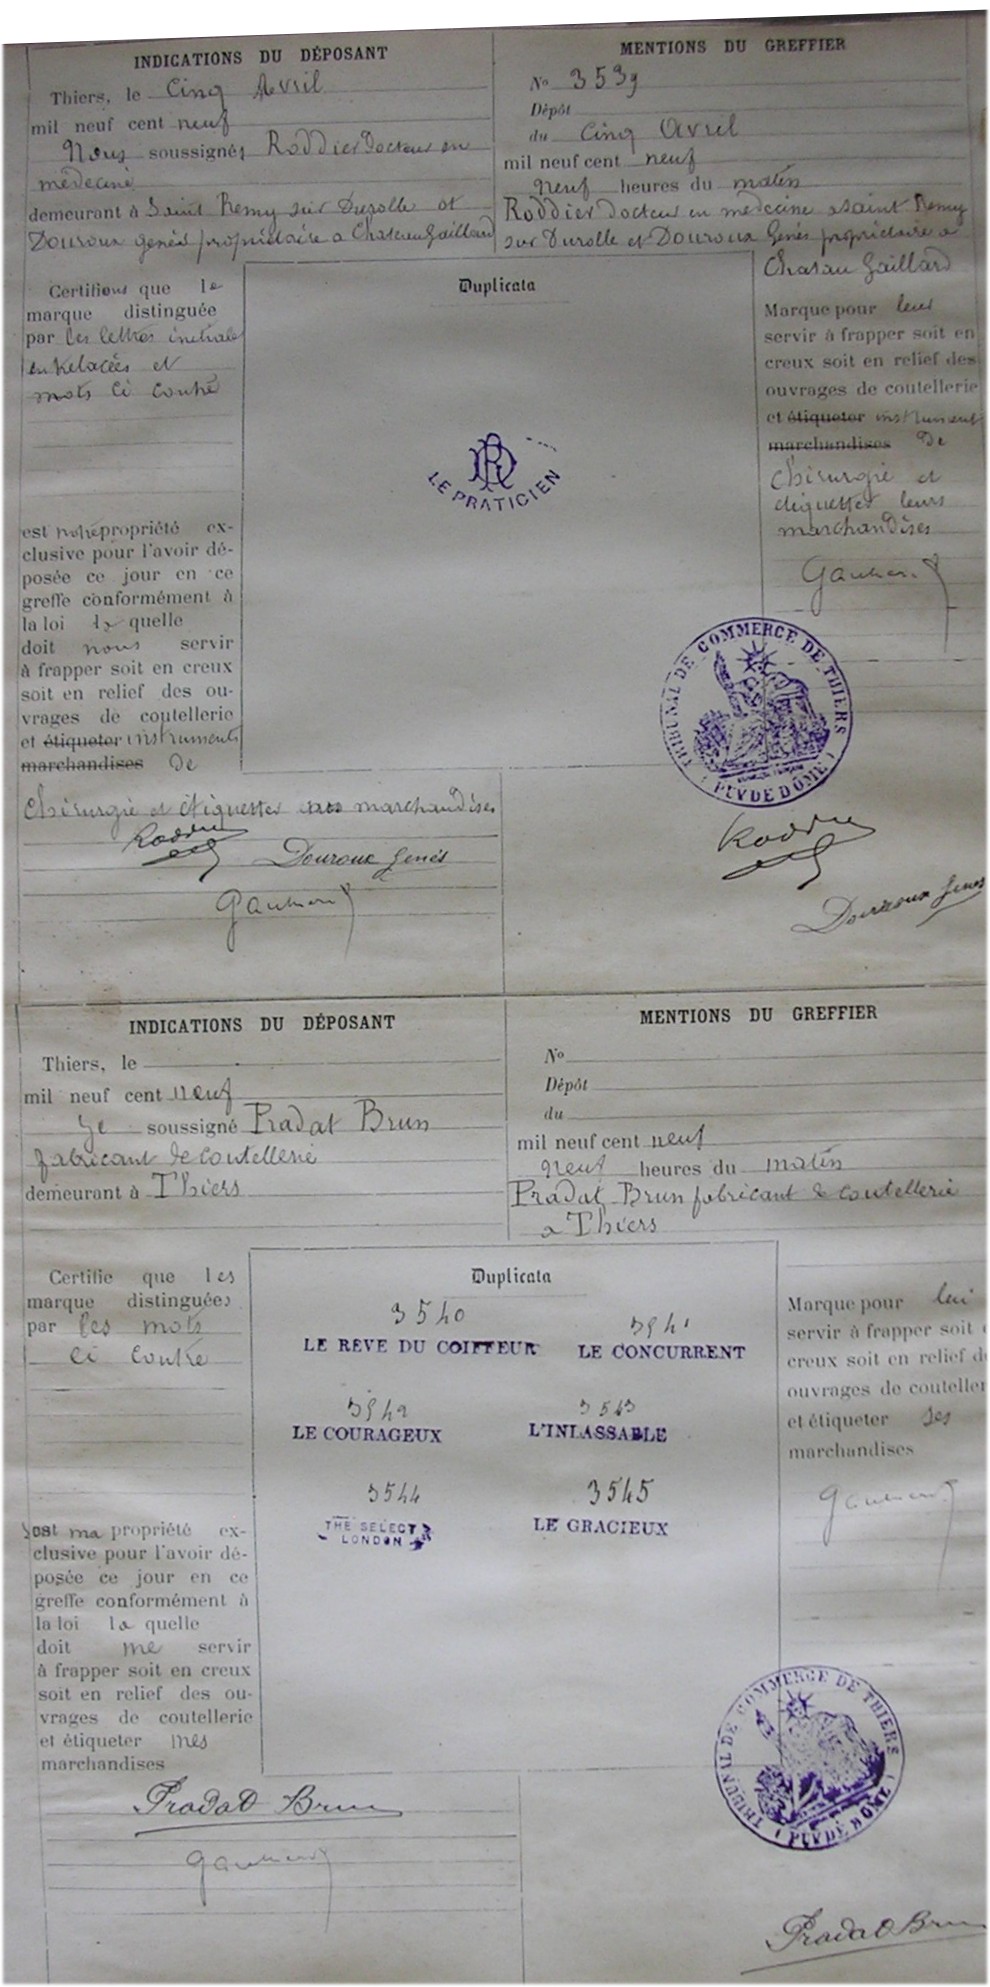 INDICATIONS DU DÉPOSANT
Thiers, le Cinq Avril
mil neuf cent neuf
Nous soussignés Roddier Docteur en
médecine
demeurant à Saint Remy sur Durolle et
Douroux Genès propriétaire a Chateau Gaillard
Certifions que la
marque distinguée
par les lettres initiales
entrelacées et
mots ci contre
est notre propriété ex-
clusive pour l'avoir dé-
posée ce jour en ce
greffe conformément à
la loi la quelle
doit nous servir
à frapper soit en creux
soit en relief des ou-
vrages de coutellerie
et étiqueter instruments
marchandises De
Chirurgie et étiquetter nos marchandises
Roddier
Douroux Genès
MENTIONS DU GREFFIER
No 3539
Dépôt
du Cinq Avril
mil neuf cent neuf
neuf heures du matin
Roddier Docteur en medecine a Saint Remy
sur Durolle et Douroux Genès propriétaire a
Chatau Gaillard
Duplicata
RD
LE PRATICIEN
Marque pour leur
servir à frapper soit en
creux soit en relief des
ouvrages de coutellerie
et étiqueter instrument
marchandises De
Chirurgie et
étiquetter leurs
marchandises
TRIBUNAL DE COMMERCE DE THIERS
( PUY DE DÔME )
Roddier
Douroux Genès
INDICATIONS DU DÉPOSANT
Thiers, le
mil neuf cent neuf
Je soussigné Pradat Brun
fabricant de coutellerie
demeurant à Thiers
Certifie que les
marque distinguées
par les mots
ci contre
sont ma propriété ex-
clusive pour l'avoir dé-
posée ce jour en ce
greffe conformément à
la loi la quelle
doit me servir
à frapper soit en creux
soit en relief des ou-
vrages de coutellerie
et étiqueter mes
marchandises
Pradat Brun
MENTIONS DU GREFFIER
No
Dépôt
du
mil neuf cent neuf
neuf heures du matin
Pradat Brun fabricant de coutellerie
a Thiers
Duplicata
3540
LE REVE DU COIFFEUR
3541
LE CONCURRENT
3542
LE COURAGEUX
3543
L'INLASSABLE
3544
THE SELECT
LONDON
3545
LE GRACIEUX
Marque pour lui
servir à frapper soit
creux soit en relief de
ouvrages de couteller
et étiqueter ses
marchandises
TRIBUNAL DE COMMERCE DE THIERS
( PUY DE DÔME )
Pradat Brun